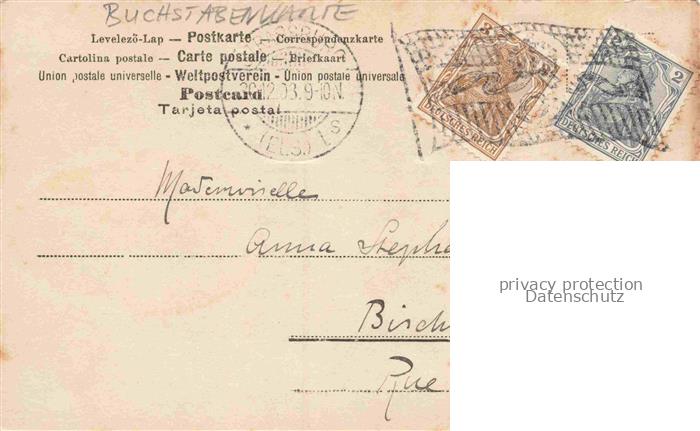 BUCHSTABENKARTE
Levelezö-Lap — Postkarte — Correspondenzkarte
Cartolina postale — Carte postale — Briefkaart
Union postale universelle - Weltpostverein - Union postale universale
Postcard.
Tarjeta postal
12.03.9-10N.
* (ELS.) 1 S
3
DEUTSCHES REICH
2
DEUTSCHES REICH
Mademoiselle
Anna Stepha
Bisch
Rue
privacy protection
Datenschutz